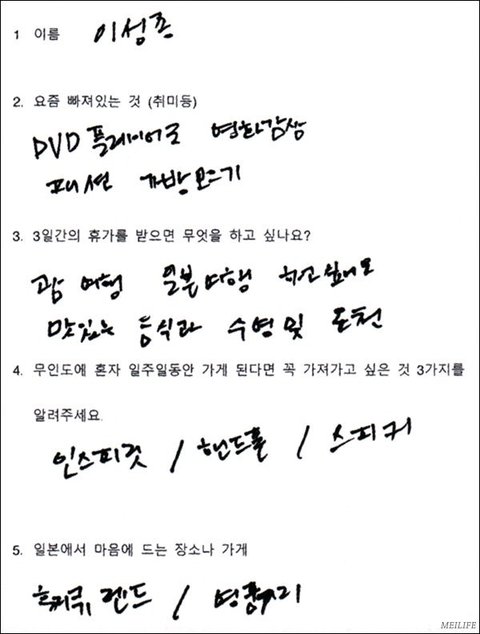 1 이름 이성종
2. 요즘 빠져있는 것 (취미등)
DVD 플레이어로 영화감상
패션 가방 모으기
3. 3일간의 휴가를 받으면 무엇을 하고 싶나요?
괌 여행 일본여행 하고 싶어요
맛있는 음식과 수영 및 온천
4. 무인도에 혼자 일주일동안 가게 된다면 꼭 가져가고 싶은 것 3가지를
알려주세요.
인스피릿 / 핸드폰 / 스피커
5. 일본에서 마음에 드는 장소나 가게
랜드 /
MEILIFE